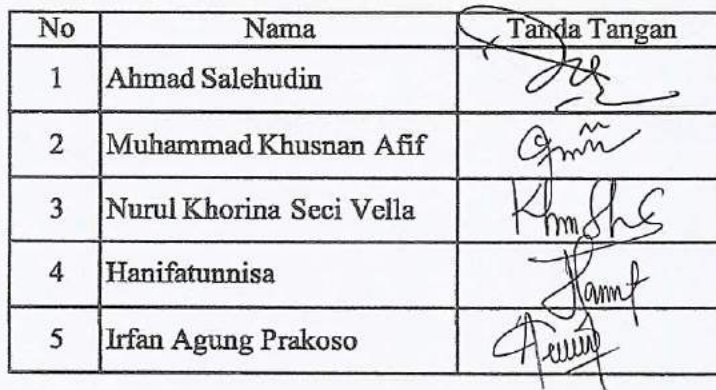 No Nama Tanda Tangan
1 Ahmad Salehudin
2 Muhammad Khusnan Afif
3 Nurul Khorina Seci Vella
4 Hanifatunnisa
5 Irfan Agung Prakoso